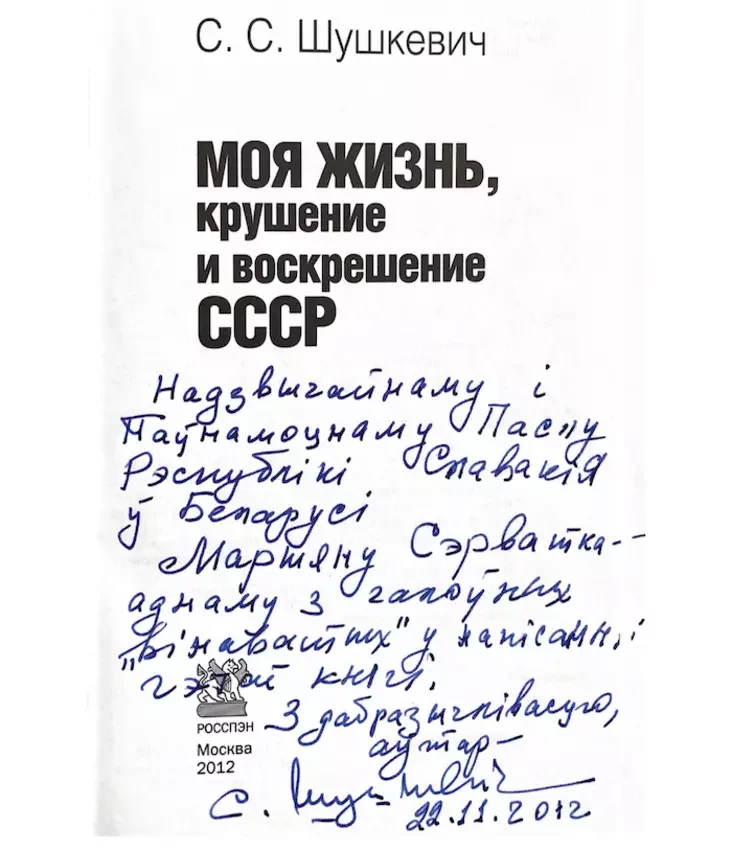 С. С. Шушкевич
МОЯ ЖИЗНЬ,
крушение
и воскрешение
СССР
Надзвычайнаму і
Паўнамоцнаму Паслу
Рэспублікі Славакія
ў Беларусі
Мар'яну Сэрватка--
аднаму з галоўных
"вінаватых" у напісанні
гэтай кнігі.
З добразычлівасцю,
аўтар–
С. Шушкевіч
22.11.2012
РОССПЭН
Москва
2012